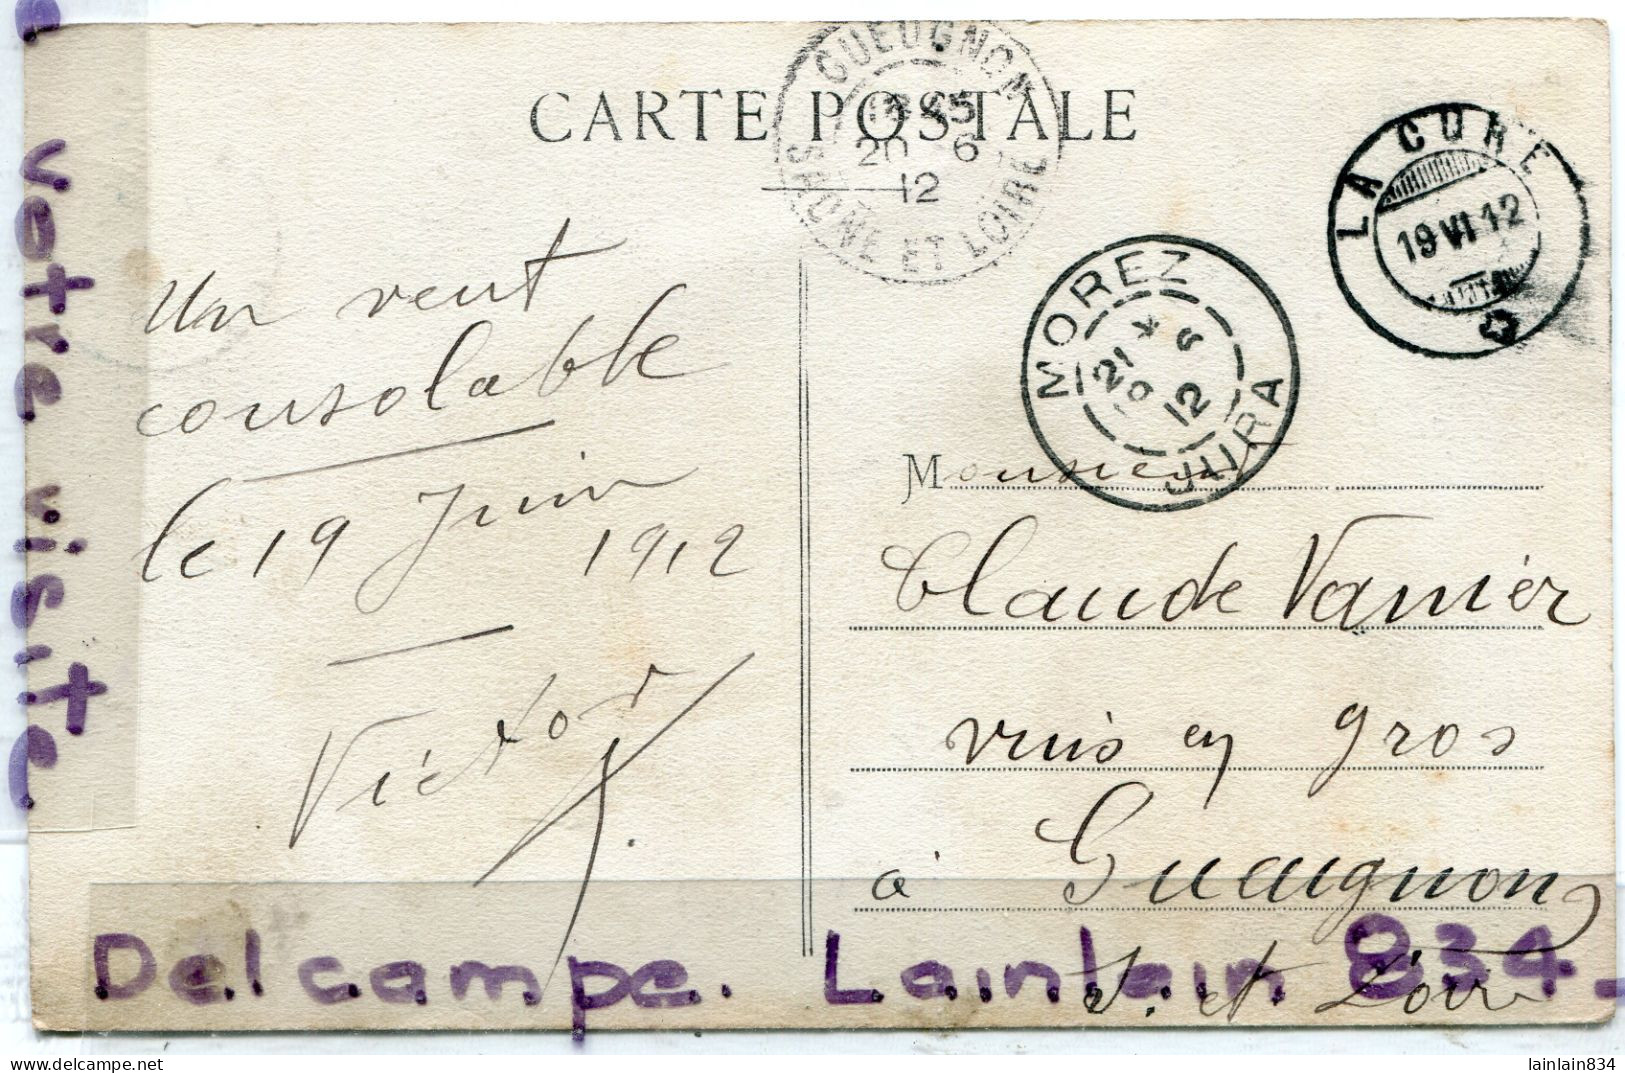 CARTE POSTALE
GUEUGNON
20 6
12
SAONE ET LOIRE
LA CURE
19 VI 12
MOREZ
21 *
9 6
12
JURA
Un vent
consolable
le 19 Juin
1912
Victor
Monsieur
Claude Vanier
vins en gros
à Gueugnon
S. et Loire
votre visite
Delcampe. Lainlain 834-
delcampe.net
lainlain834